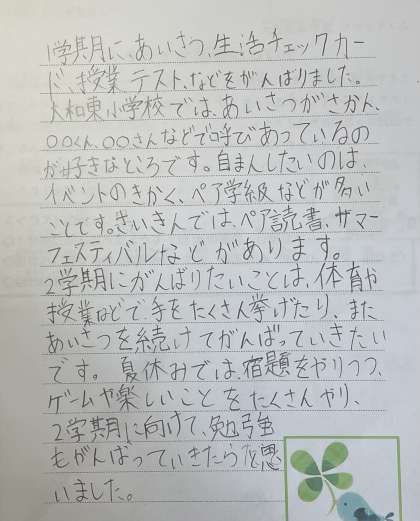 1学期に、あいさつ、生活チェックカー
ド、授業、テスト、などをがんばりました。
大和東小学校では、あいさつがさかん、
○○くん、○○さんなどで呼びあっているの
が好きなところです。自まんしたいのは、
イベントのきかく、ペア学級などが多い
ことです。さいきんでは、ペア読書、サマー
フェスティバルなどがあります。
2学期にがんばりたいことは、体育や
授業などで手をたくさん挙げたり、また
あいさつを続けてがんばっていきたい
です。夏休みでは、宿題をやりつつ、
ゲームや楽しいことをたくさんやり、
2学期に向けて、勉強
もがんばっていきたいと思
いました。